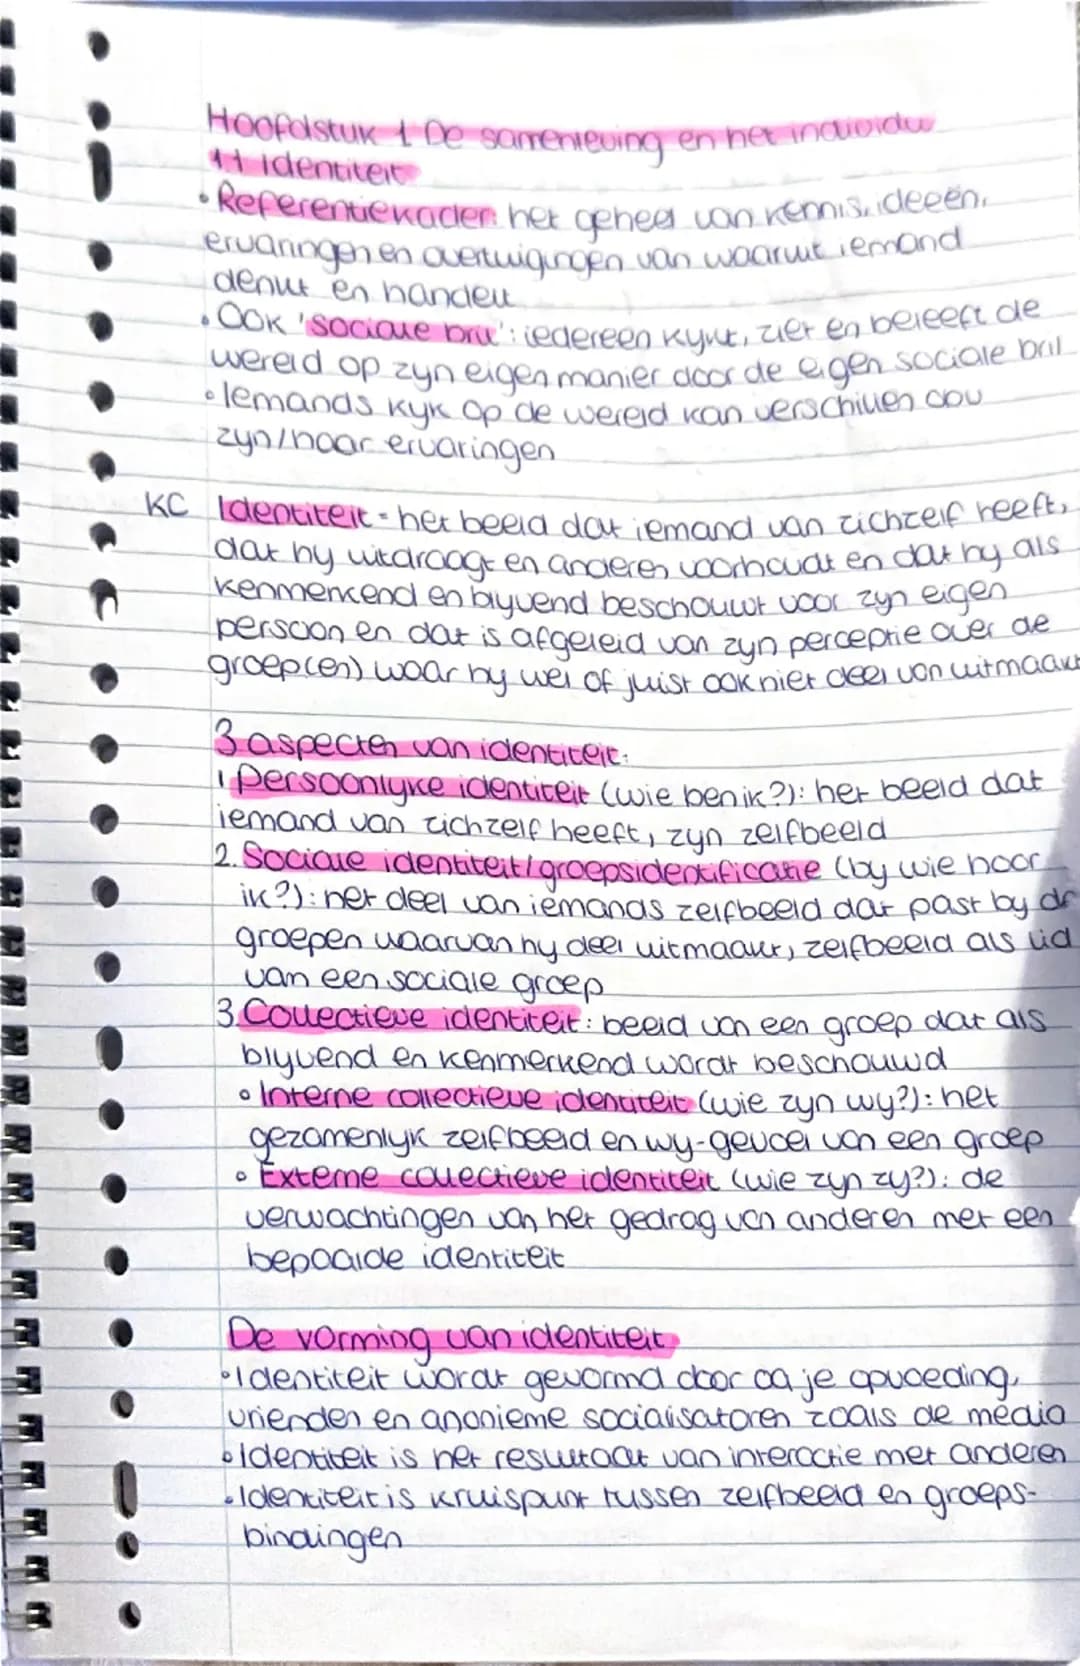 Hoofdstuk 1 De samenleving en het individu
1.1 identiteit
• Referentiekader: het geheel van kennis, ideeën,
ervaringen en overtuigingen van waaruit iemand
denkt en handelt
• Ook 'sociale bril': iedereen kijkt, ziet en beleeft de
wereld op zijn eigen manier door de eigen sociale bril
• Iemands kijk op de wereld kan verschillen dov
zijn/haar ervaringen
KC Identiteit = het beeld dat iemand van zichzelf heeft,
dat hij uitdraagt en anderen voorhoudt en dat hij als
kenmerkend en blijvend beschouwt voor zijn eigen
persoon en dat is afgeleid van zijn perceptie over de
groep(en) waar hij wel of juist ook niet deel van uitmaakt
3 aspecten van identiteit:
1 Persoonlijke identiteit (wie ben ik?): het beeld dat
iemand van zichzelf heeft, zijn zelfbeeld
2. Sociale identiteit/groepsidentificatie (bij wie hoor
ik?): het deel van iemands zelfbeeld dat past bij de
groepen waarvan hij deel uitmaakt, zelfbeeld als lid
van een sociale groep
3. Collectieve identiteit: beeld van een groep dat als
blijvend en kenmerkend wordt beschouwd
• Interne collectieve identiteit (wie zijn wij?): het
gezamenlijk zelfbeeld en wij-gevoel van een groep
• Externe collectieve identiteit (wie zijn zij?): de
verwachtingen van het gedrag van anderen met een
bepaalde identiteit
De vorming van identiteit
• Identiteit wordt gevormd door oa je opvoeding,
vrienden en anonieme socialisatoren zoals de media
• Identiteit is het resultaat van interactie met anderen
• Identiteit is kruispunt tussen zelfbeeld en groeps-
bindingen